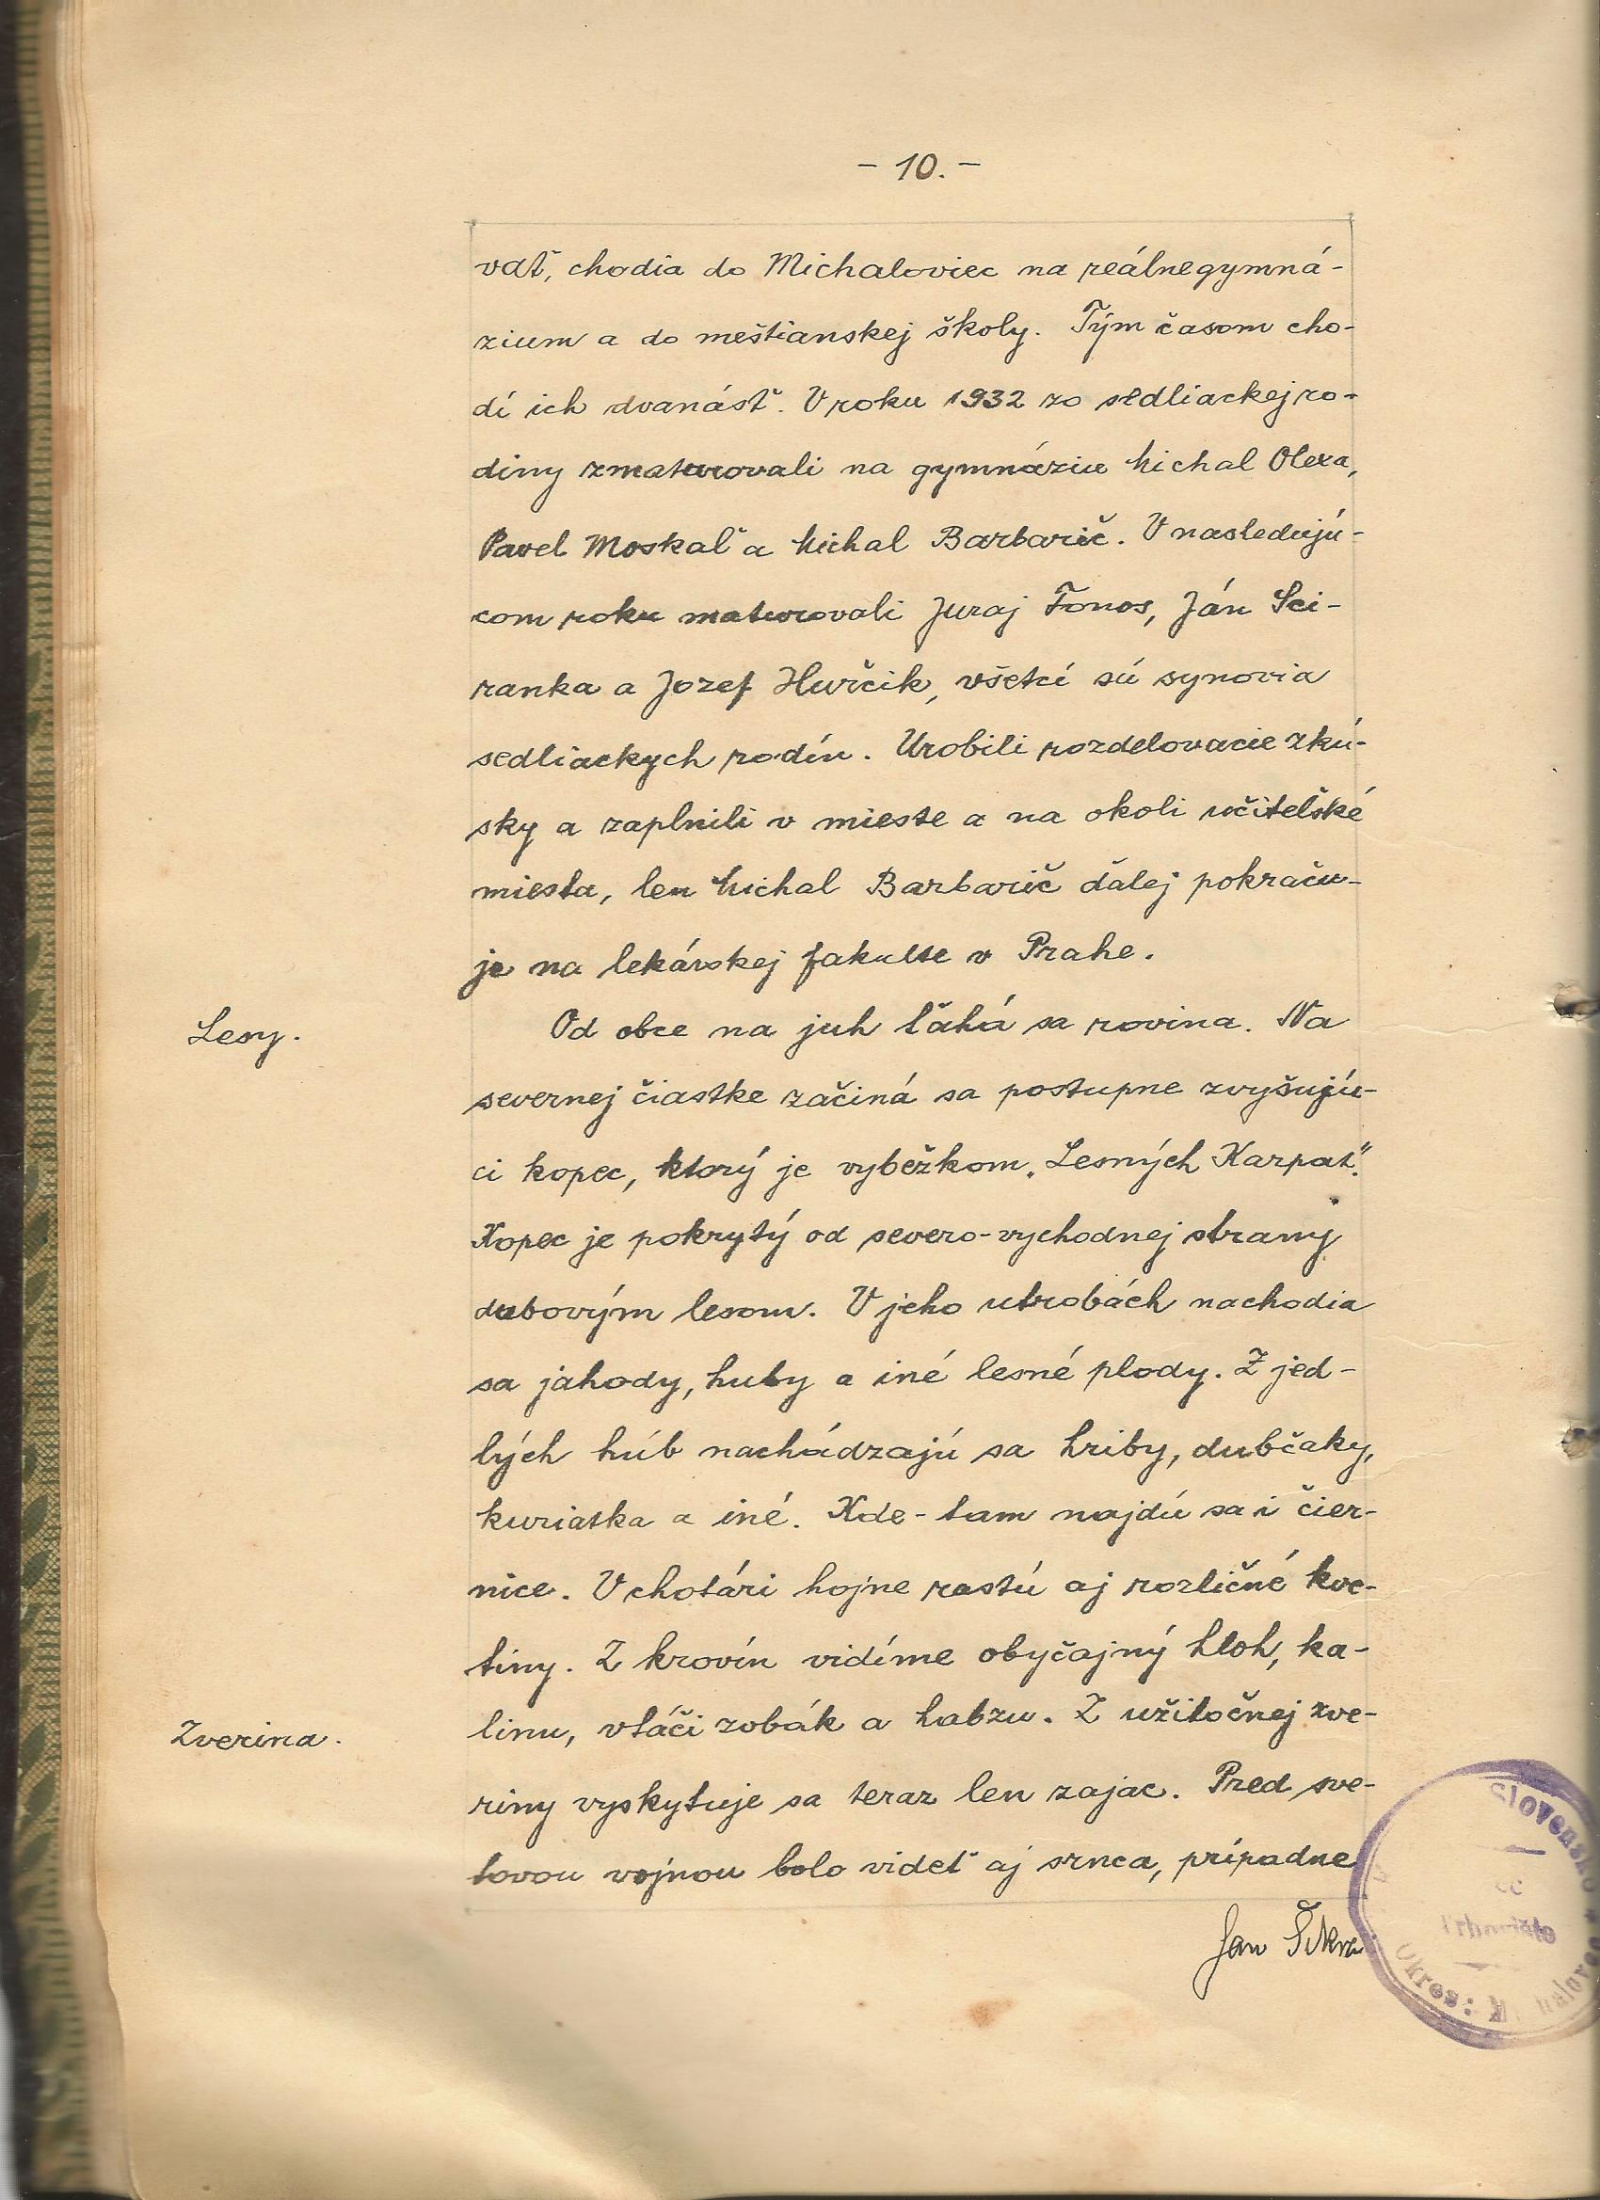 - 10. -
vať, chodia do Michaloviec na reálnegymná-
zium a do meštianskej školy. Tým časom cho-
dí ich dvanásť. V roku 1932 zo sedliackej ro-
diny zmaturovali na gymnáziu Michal Olexa,
Pavel Moskaľ a Michal Barbarič. V nasledujú-
com roku maturovali Juraj Fonos, Ján Sci-
ranka a Jozef Hurčik, všetci sú synovia
sedliackych rodín. Urobili rozdelovacie zkú-
šky a zaplnili v mieste a na okoli učiteľské
miesta, len Michal Barbarič ďalej pokraču-
je na lekárskej fakulte v Prahe.
Lesy.
Od obce na juh ťahá sa rovina. Na
severnej čiastke začiná sa postupne zvyšujú-
ci kopec, ktorý je vybežkom „Lesných Karpat".
Kopec je pokrytý od severo-vychodnej strany
dubovým lesom. V jeho utrobách nachodia
sa jahody, huby a iné lesné plody. Z jed-
lých húb nachádzajú sa hriby, dubčaky,
kuriatka a iné. Kde-tam najdú sa i čier-
nice. V chotári hojne rastú aj rozličné kve-
tiny. Z krovín vidíme obyčajný hloh, ka-
Zverina.
linu, vtáči zobák a habzu. Z užitočnej zve-
riny vyskytuje sa teraz len zajac. Pred sve-
tovou vojnou bolo videť aj srnca, prípadne
Jan
Slovensko
Okres: